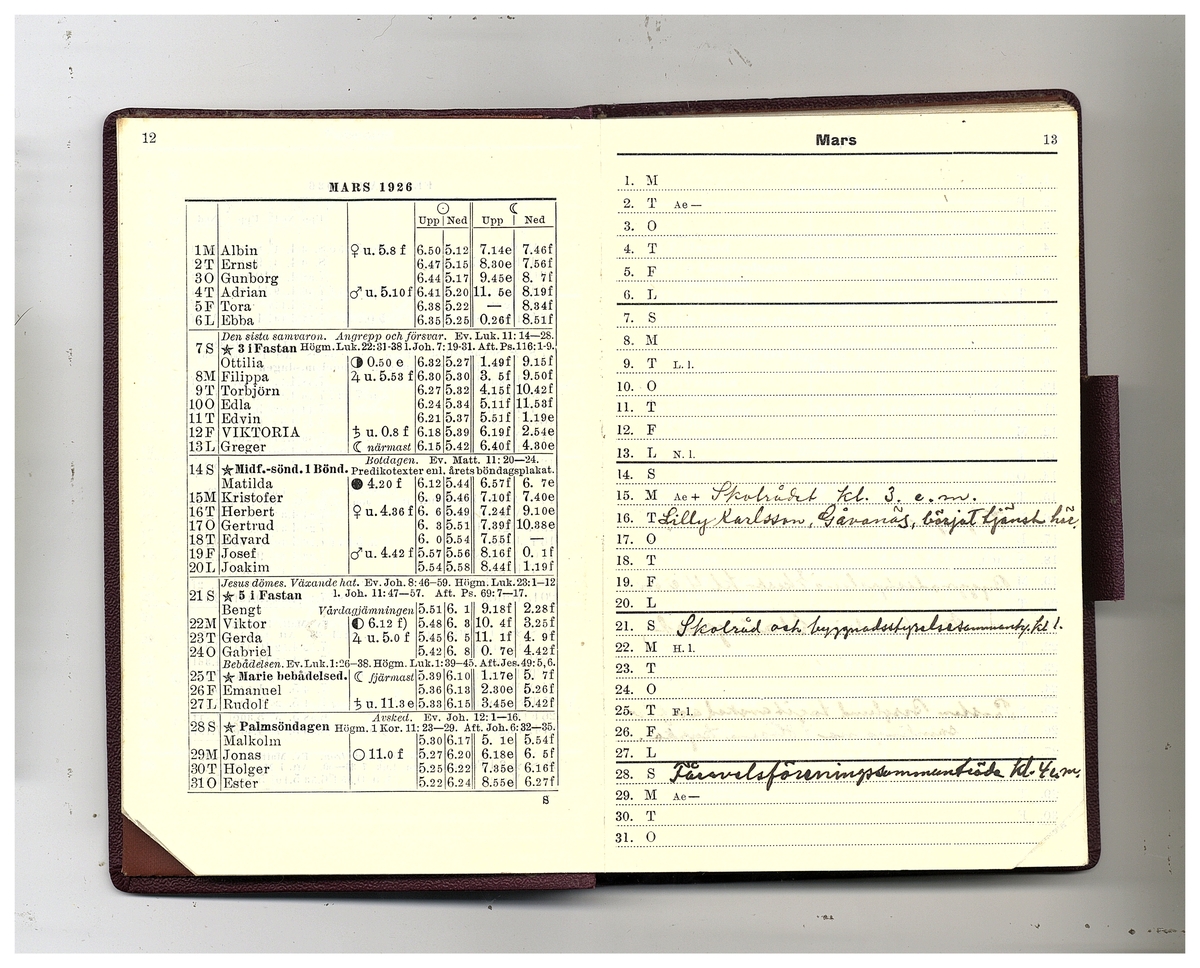 12
MARS 1926
☉ ☾
Upp Ned Upp Ned
1 M Albin ♀ u. 5.8 f 6.50 5.12 7.14e 7.46f
2 T Ernst 6.47 5.15 8.30e 7.56f
3 O Gunborg 6.44 5.17 9.45e 8. 7f
4 T Adrian ♂ u. 5.10 f 6.41 5.20 11. 5e 8.19f
5 F Tora 6.38 5.22 — 8.34f
6 L Ebba 6.35 5.25 0.26f 8.51f
Den sista samvaron. Angrepp och försvar. Ev. Luk. 11: 14—28.
7 S ★ 3 i Fastan Högm. Luk. 22:31-38 l. Joh. 7: 19-31. Aft. Ps. 116: 1-9.
Ottilia ◑ 0.50 e 6.32 5.27 1.49f 9.15f
8 M Filippa ♃ u. 5.53 f 6.30 5.30 3. 5f 9.50f
9 T Torbjörn 6.27 5.32 4.15f 10.42f
10 O Edla 6.24 5.34 5.11f 11.53f
11 T Edvin 6.21 5.37 5.51f 1.19e
12 F VIKTORIA ♄ u. 0.8 f 6.18 5.39 6.19f 2.54e
13 L Greger ☾ närmast 6.15 5.42 6.40f 4.30e
Botdagen. Ev. Matt. 11: 20—24.
14 S ★ Midf.-sönd. 1 Bönd. Predikotexter enl. årets böndagsplakat.
Matilda ● 4.20 f 6.12 5.44 6.57f 6. 7e
15 M Kristofer 6. 9 5.46 7.10f 7.40e
16 T Herbert ♀ u. 4.36 f 6. 6 5.49 7.24f 9.10e
17 O Gertrud 6. 3 5.51 7.39f 10.38e
18 T Edvard 6. 0 5.54 7.55f —
19 F Josef ♂ u. 4.42 f 5.57 5.56 8.16f 0. 1f
20 L Joakim 5.54 5.58 8.44f 1.19f
Jesus dömes. Växande hat. Ev. Joh. 8: 46—59. Högm. Luk. 23: 1—12
21 S ★ 5 i Fastan l. Joh. 11: 47—57. Aft. Ps. 69: 7—17.
Bengt Vårdagjämningen 5.51 6. 1 9.18f 2.28f
22 M Viktor ◐ 6.12 f) 5.48 6. 3 10. 4f 3.25f
23 T Gerda ♃ u. 5.0 f 5.45 6. 5 11. 1f 4. 9f
24 O Gabriel 5.42 6. 8 0. 7e 4.42f
Bebådelsen. Ev. Luk. 1: 26—38. Högm. Luk. 1: 39—45. Aft. Jes. 49: 5, 6.
25 T ★ Marie bebådelsed. ☾ fjärmast 5.39 6.10 1.17e 5. 7f
26 F Emanuel 5.36 6.13 2.30e 5.26f
27 L Rudolf ♄ u. 11.3 e 5.33 6.15 3.45e 5.42f
Avsked. Ev. Joh. 12: 1—16.
28 S ★ Palmsöndagen Högm. 1 Kor. 11: 23—29. Aft. Joh. 6: 32—35.
Malkolm 5.30 6.17 5. 1e 5.54f
29 M Jonas ○ 11.0 f 5.27 6.20 6.18e 6. 5f
30 T Holger 5.25 6.22 7.35e 6.16f
31 O Ester 5.22 6.24 8.55e 6.27f
S
Mars 13
1. M
2. T Ae —
3. O
4. T
5. F
6. L
7. S
8. M
9. T L. l.
10. O
11. T
12. F
13. L N. l.
14. S
15. M Ae + Skolrådet kl. 3. e. m.
16. T Lilly Karlsson, Gåvanäs, börjat tjänst här.
17. O
18. T
19. F
20. L
21. S Skolråd och byggnadsstyrelsesammantr. kl 1.
22. M H. l.
23. T
24. O
25. T F. l.
26. F
27. L
28. S kl. 4 e. m.
29. M Ae —
30. T
31. O